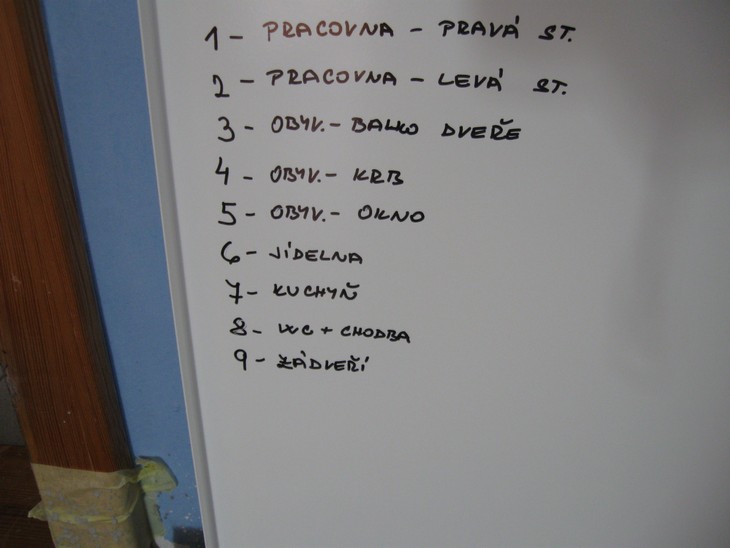 1 - PRACOVNA - PRAVÁ ST.
2 - PRACOVNA - LEVÁ ST.
3 - OBYV. - BALKO DVEŘE
4 - OBYV. - KRB
5 - OBYV. - OKNO
6 - JÍDELNA
7 - KUCHYŇ
8 - WC + CHODBA
9 - ZÁDVEŘÍ